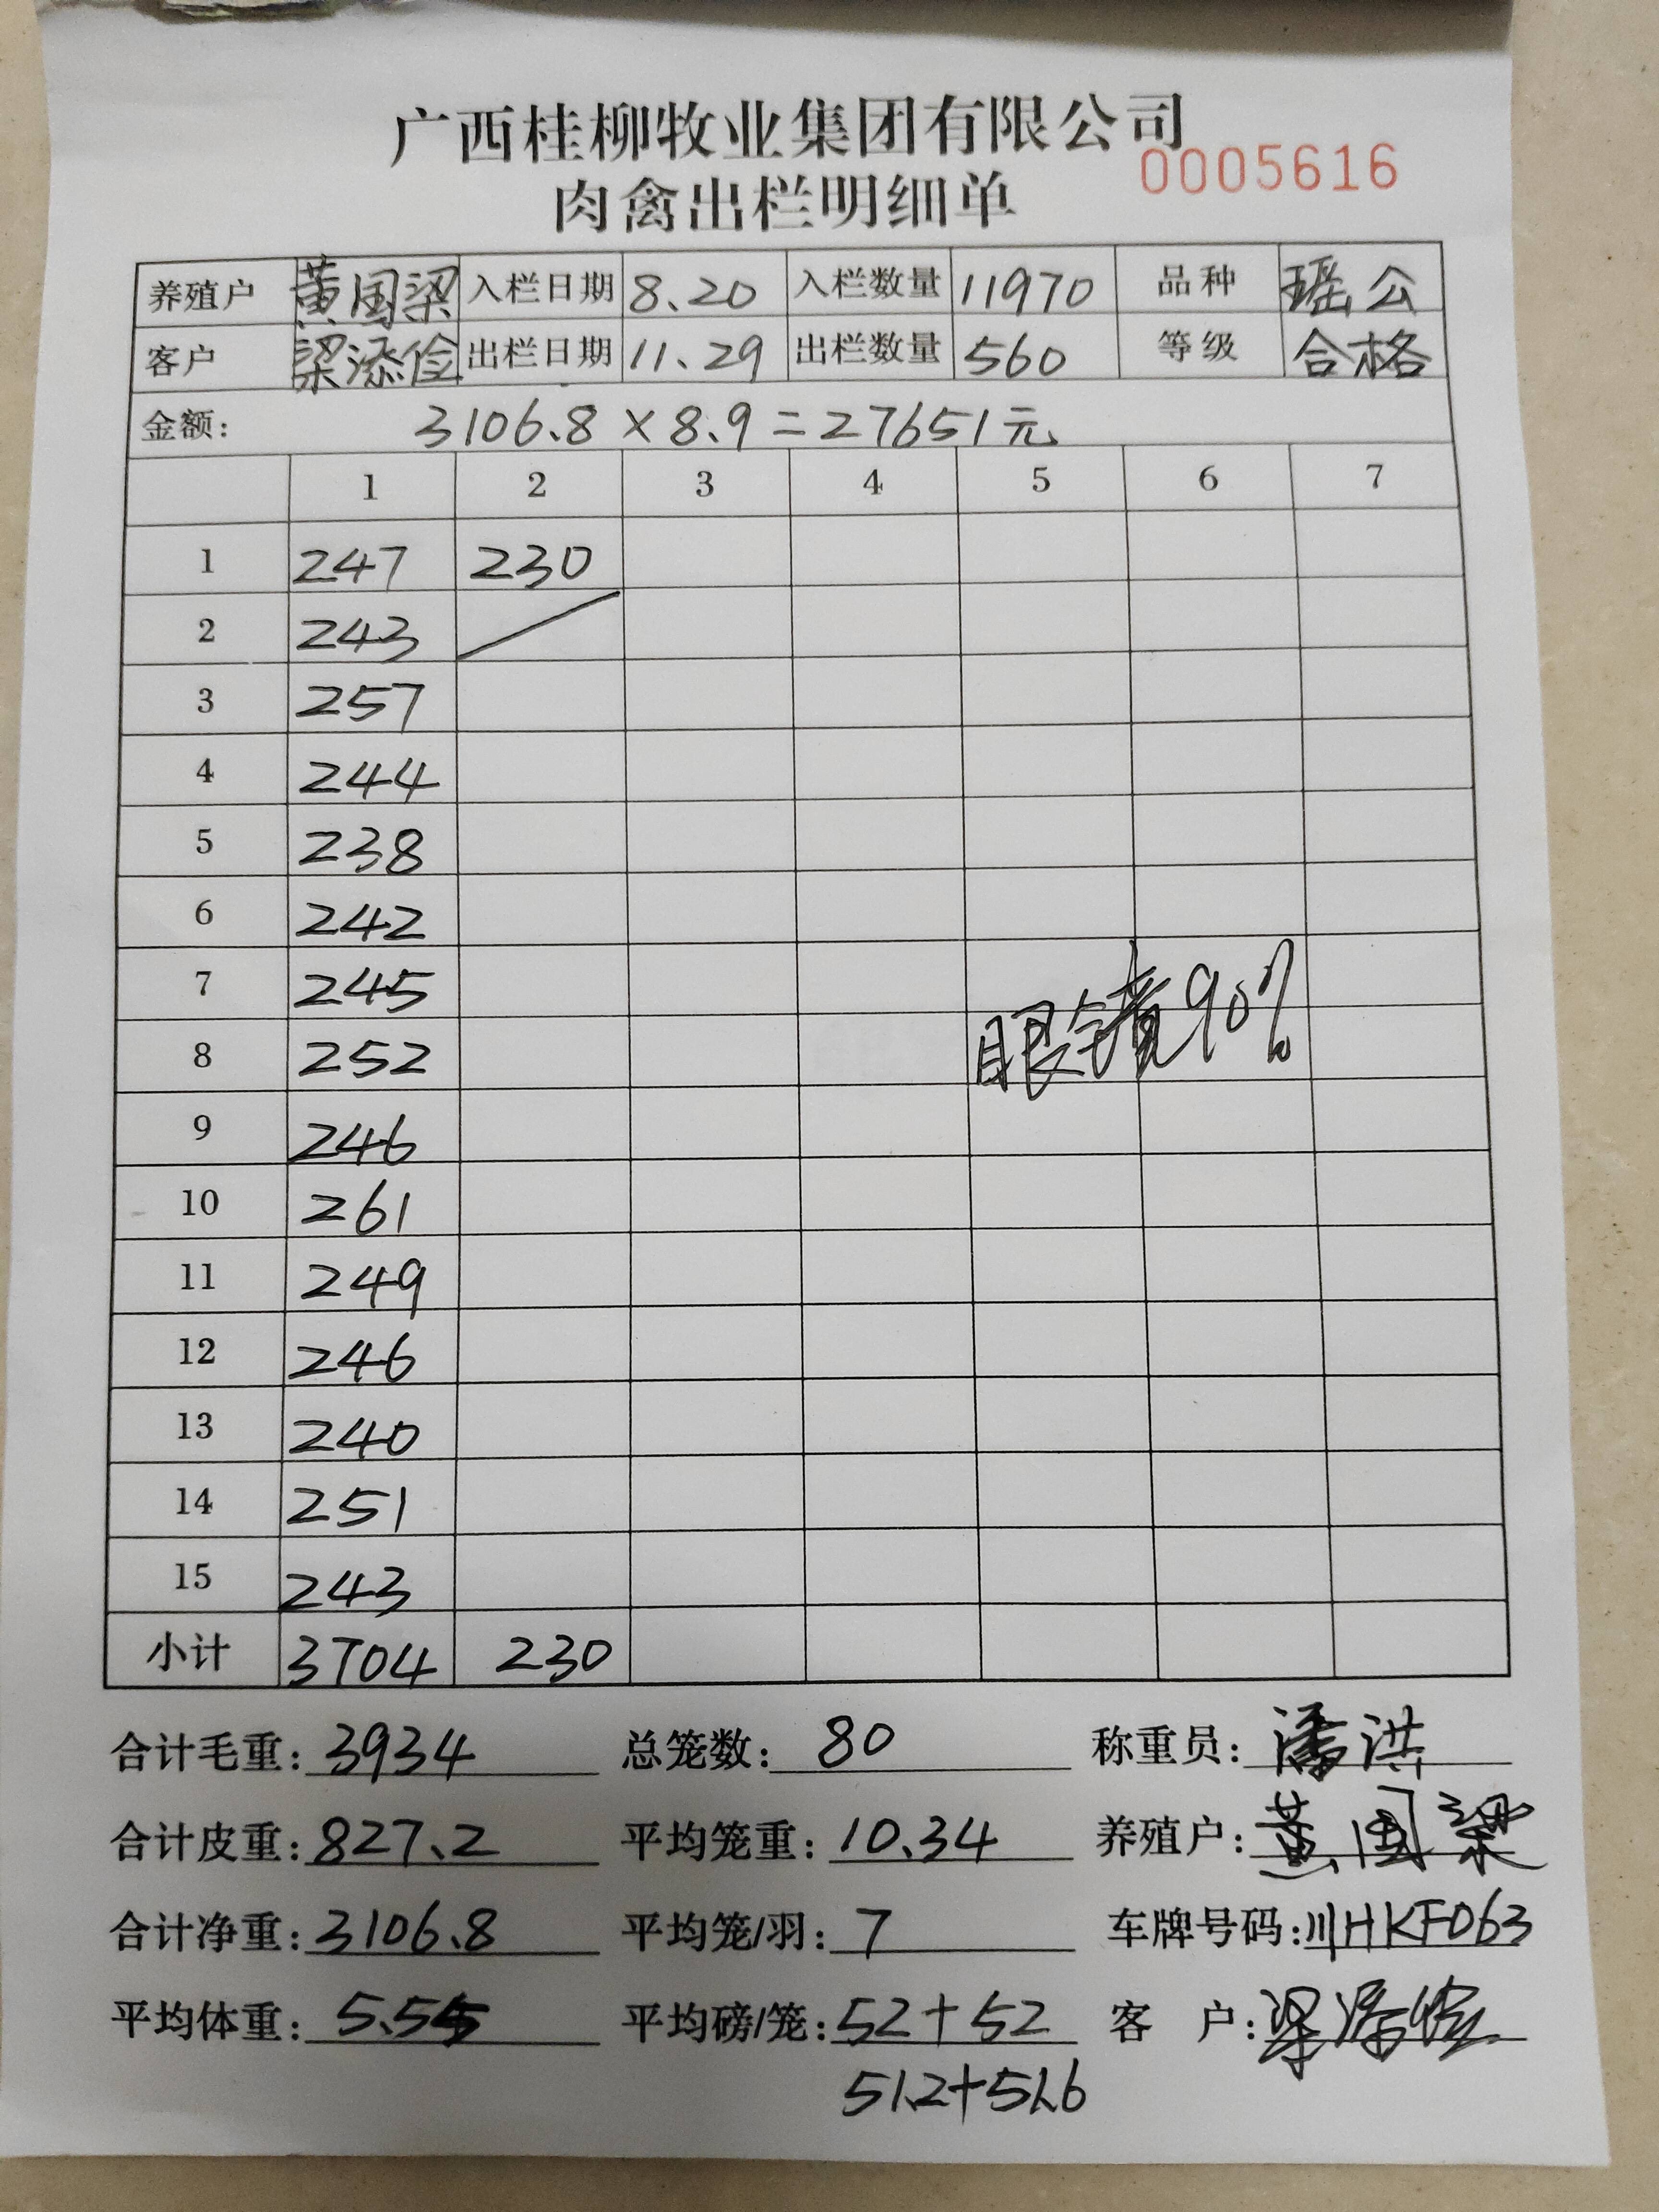 广西桂柳牧业集团有限公司
0005616
肉禽出栏明细单
养殖户 黄国梁 入栏日期 8.20 入栏数量 11970 品种 瑶公
客户 梁添俭 出栏日期 11.29 出栏数量 560 等级 合格
金额: 3106.8×8.9=27651元
1 2 3 4 5 6 7
1 247 230
2 243
3 257
4 244
5 238
6 242
7 245
眼镜90%
8 252
9 246
10 261
11 249
12 246
13 240
14 251
15 243
小计 3704 230
合计毛重: 3934 总笼数: 80 称重员: 潘洪
合计皮重: 827.2 平均笼重: 10.34 养殖户: 黄国梁
合计净重: 3106.8 平均笼/羽: 7 车牌号码: 川HKF063
平均体重: 5.55 平均磅/笼: 52+52 客户: 梁添俭
51.2+51.6